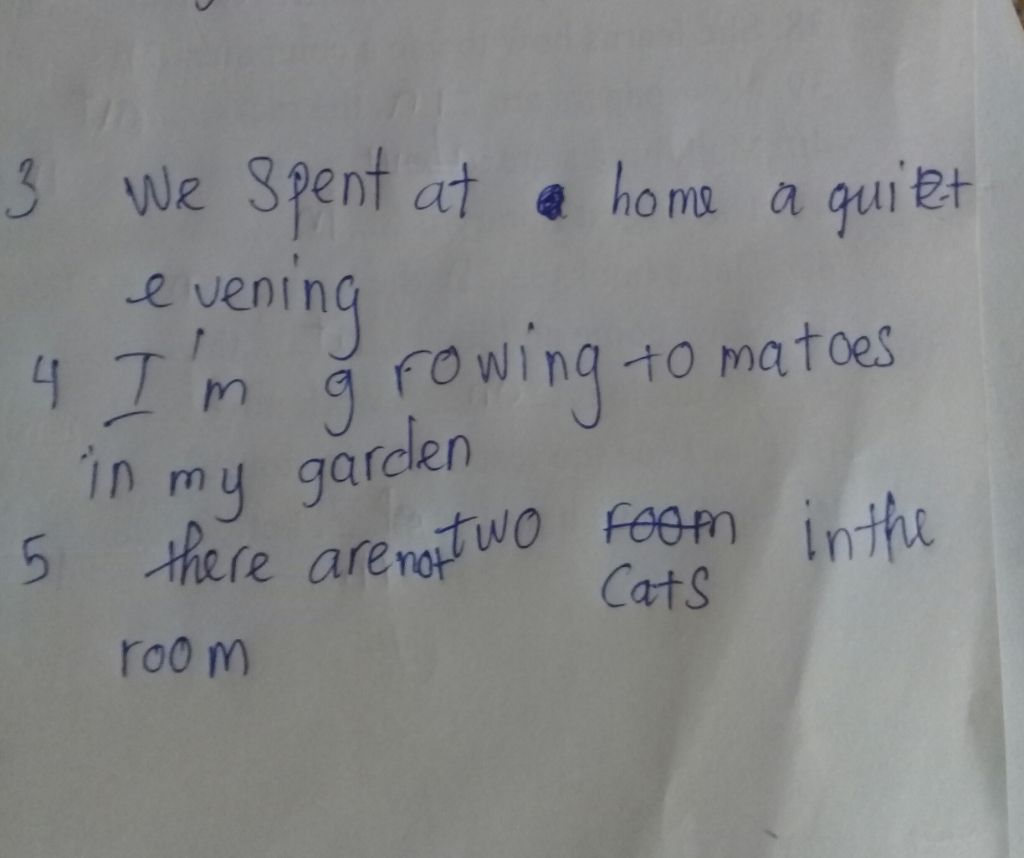 3 We Spent at home a quiet
evening
4 I'm growing tomatoes
in my garden
5 there are not two room in the
Cats
room